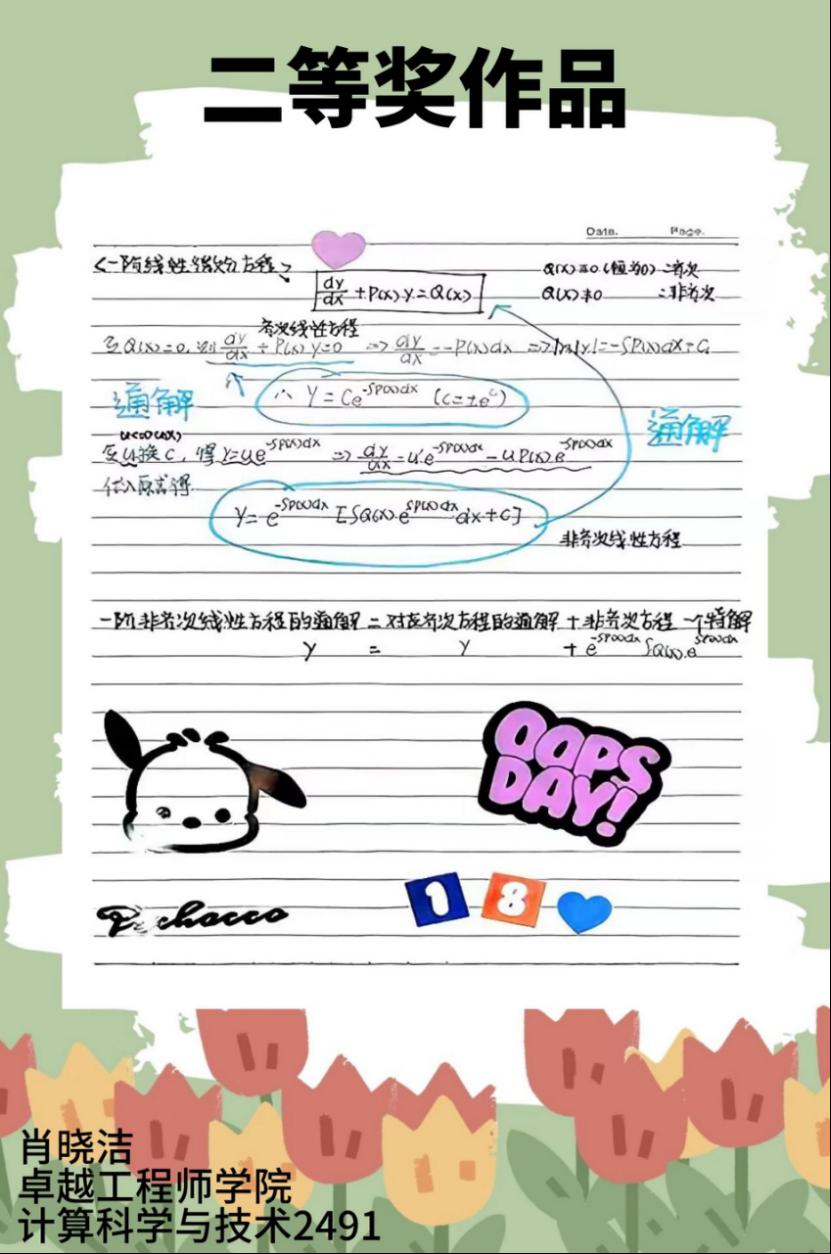 二等奖作品
Date.    Page.
<一阶线性微分方程>
dy/dx + P(x)y = Q(x)
Q(x)≡0.(恒为0) :齐次
Q(x)≠0 :非齐次
齐次线性方程
令Q(x)=0, 则 dy/dx + P(x)y=0 => dy/dx = -P(x)dx => ln|y|=-∫P(x)dx+C₁
通解
∴ y = Ce^{-∫P(x)dx} (C=±e^{C₁})
通解
变u换C, 得y=ue^{-∫P(x)dx} => dy/dx = u'e^{-∫P(x)dx} - uP(x)e^{-∫P(x)dx}
代入原式得
y= e^{-∫P(x)dx} [∫Q(x)e^{∫P(x)dx}dx+C]
非齐次线性方程
一阶非齐次线性方程的通解 = 对应齐次方程的通解 + 非齐次方程一个特解
y = y + e^{-∫P(x)dx} ∫Q(x).e^{∫P(x)dx}
OOPS
DAY!
18
肖晓洁
卓越工程师学院
计算科学与技术2491